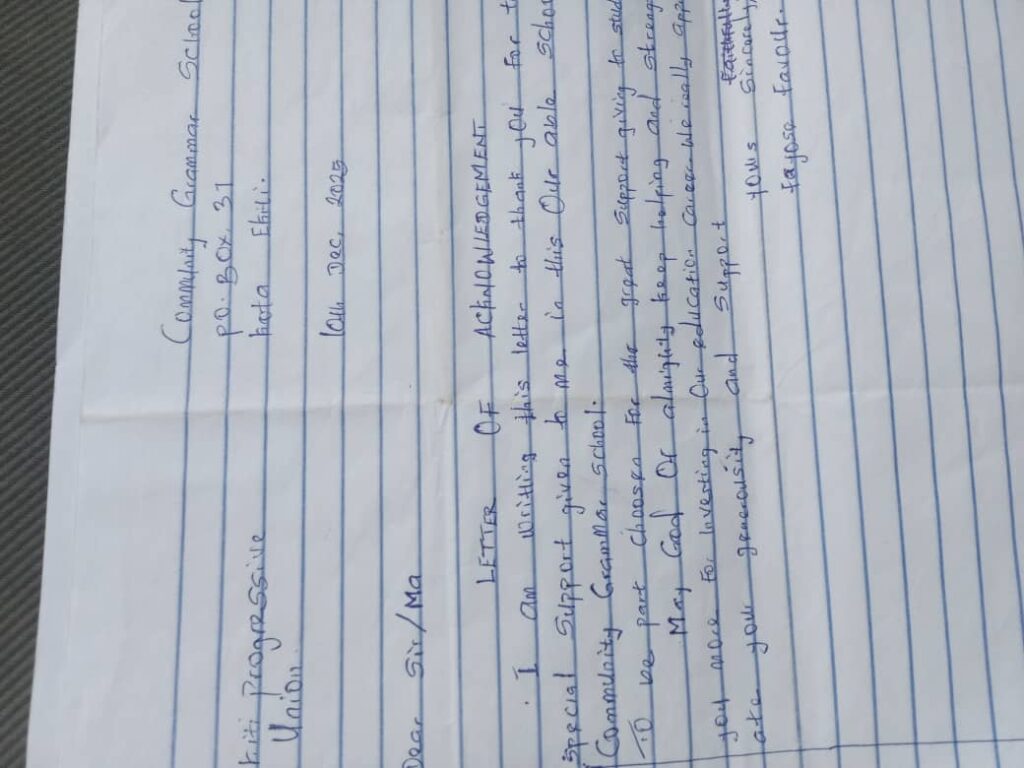 Community Grammar School
P.O. BOX. 31
Ekiti.
10th Dec, 2025
Ekiti Progressive
Union.
Dear Sir/Ma
LETTER OF ACKNOWLEDGEMENT
I am writting this letter to thank you for
special support given to me in this Our able
Community Grammar school.
To be part choosen For the great support giving to
May God Of almighty keep helping and
you more For investing in Our education career. We really
ate your generousity and support
yours Sincerely,
Fayose Favour.